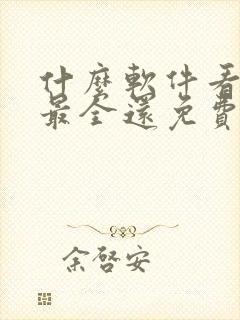 什麼軟件看
最全還免費
余啓安